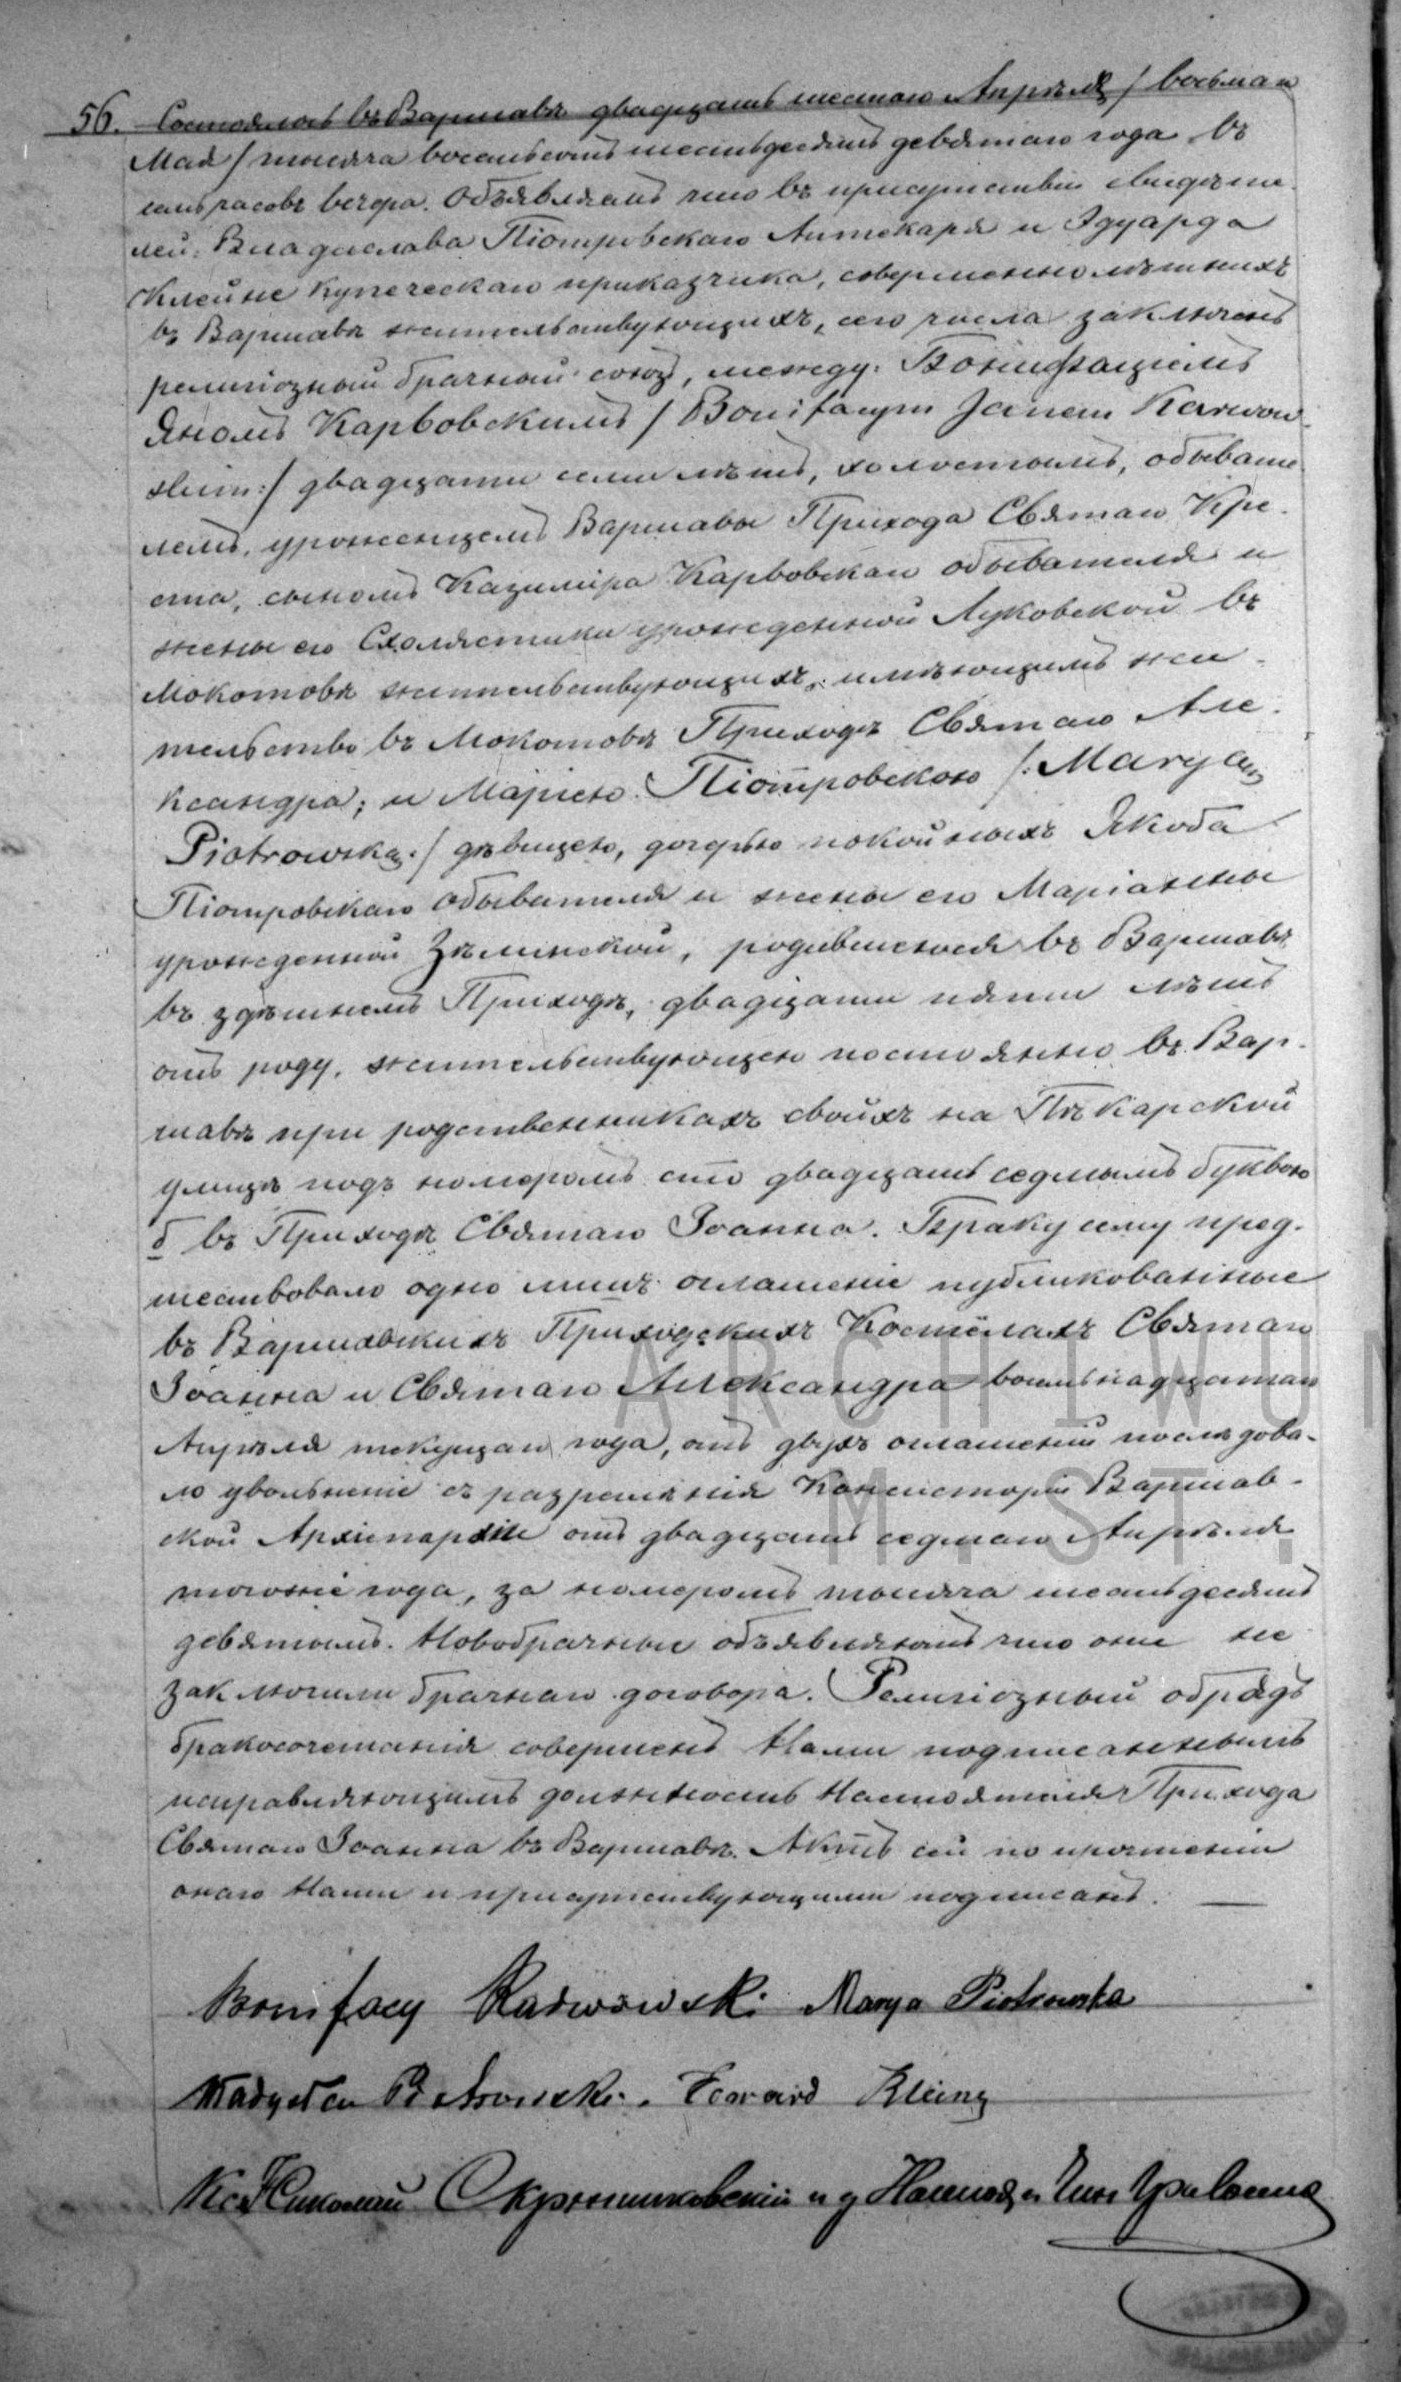 56. Состоялось въ Варшавѣ двадцать шестаго Апрѣля / восьмаго
Мая / тысяча восемьсотъ шестьдесятъ девятаго года въ
семь часовъ вечера. Объявляемъ что въ присутствіи свидѣте-
лей: Владислава Піотровскаго Аптекаря и Эдуарда
Клейне Купеческаго приказчика, совершеннолѣтнихъ
въ Варшавѣ жительствующихъ, сего числа заключенъ
религіозный брачный союзъ, между: Бонифаціемъ
Яномъ Карвовскимъ / Bonifacym Janem Karwow-
skim :/ двадцати семи лѣтъ, холостымъ, обывате-
лемъ, уроженцемъ Варшавы Прихода Святаго Кре-
ста, сыномъ Казимѣра Карвовскаго обывателя и
жены его Схолястики урожденной Луковской въ
Мокотовѣ жительствующихъ, имѣющимъ жи-
тельство въ Мокотовѣ Приходѣ Святаго Але-
ксандра; и Маріею Піотровскою /: Maryą
Piotrowską :/ дѣвицею, дочерью покойныхъ Якоба
Піотровскаго Обывателя и жены его Маріанны
урожденной Зѣлинской, родившеюся въ Варшавѣ
въ здѣшнемъ Приходѣ, двадцати пяти лѣтъ
отъ роду, жительствующею постоянно въ Вар-
шавѣ при родственникахъ своихъ на Пѣкарской
улицѣ подъ номеромъ сто двадцать седмымъ буквою
б въ Приходѣ Святаго Іоанна. Браку сему пред-
шествовало одно лишь оглашеніе публикованные
въ Варшавскихъ Приходскихъ Костёлахъ Святаго
Іоанна и Святаго Александра восемьнадцатаго
Апрѣля текущаго года, отъ двухъ оглашеній послѣдова-
ло увольненіе съ разрѣшенія Консисторіи Варшав-
ской Архіепархіи отъ двадцать седмаго Апрѣля
тогоже года, за номеромъ тысяча шестьдесятъ
девятымъ. Новобрачные объявляютъ что они не
заключили брачнаго договора. Религіозный обрядъ
бракосочетанія совершенъ Нами подписаннымъ
исправляющимъ должность Настоятеля Прихода
Святаго Іоанна въ Варшавѣ. Актъ сей по прочтеніи
онаго Нами и присутствующими подписанъ.
Bonifacy Karwowski Marya Piotrowska
Władysław Piotrowski. Edward Kleine
Кс. Николай и д
ARCHIWUM
M. ST.